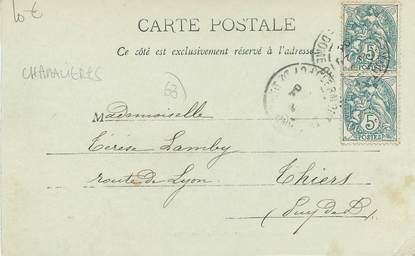 10 €
CARTE POSTALE
Ce côté est exclusivement réservé à l'adresse
CHAMALIÈRES
63
Mademoiselle
Térèse Lamby
route de Lyon
Thiers
(Puy de D)
5c
POSTES
5c
POSTES